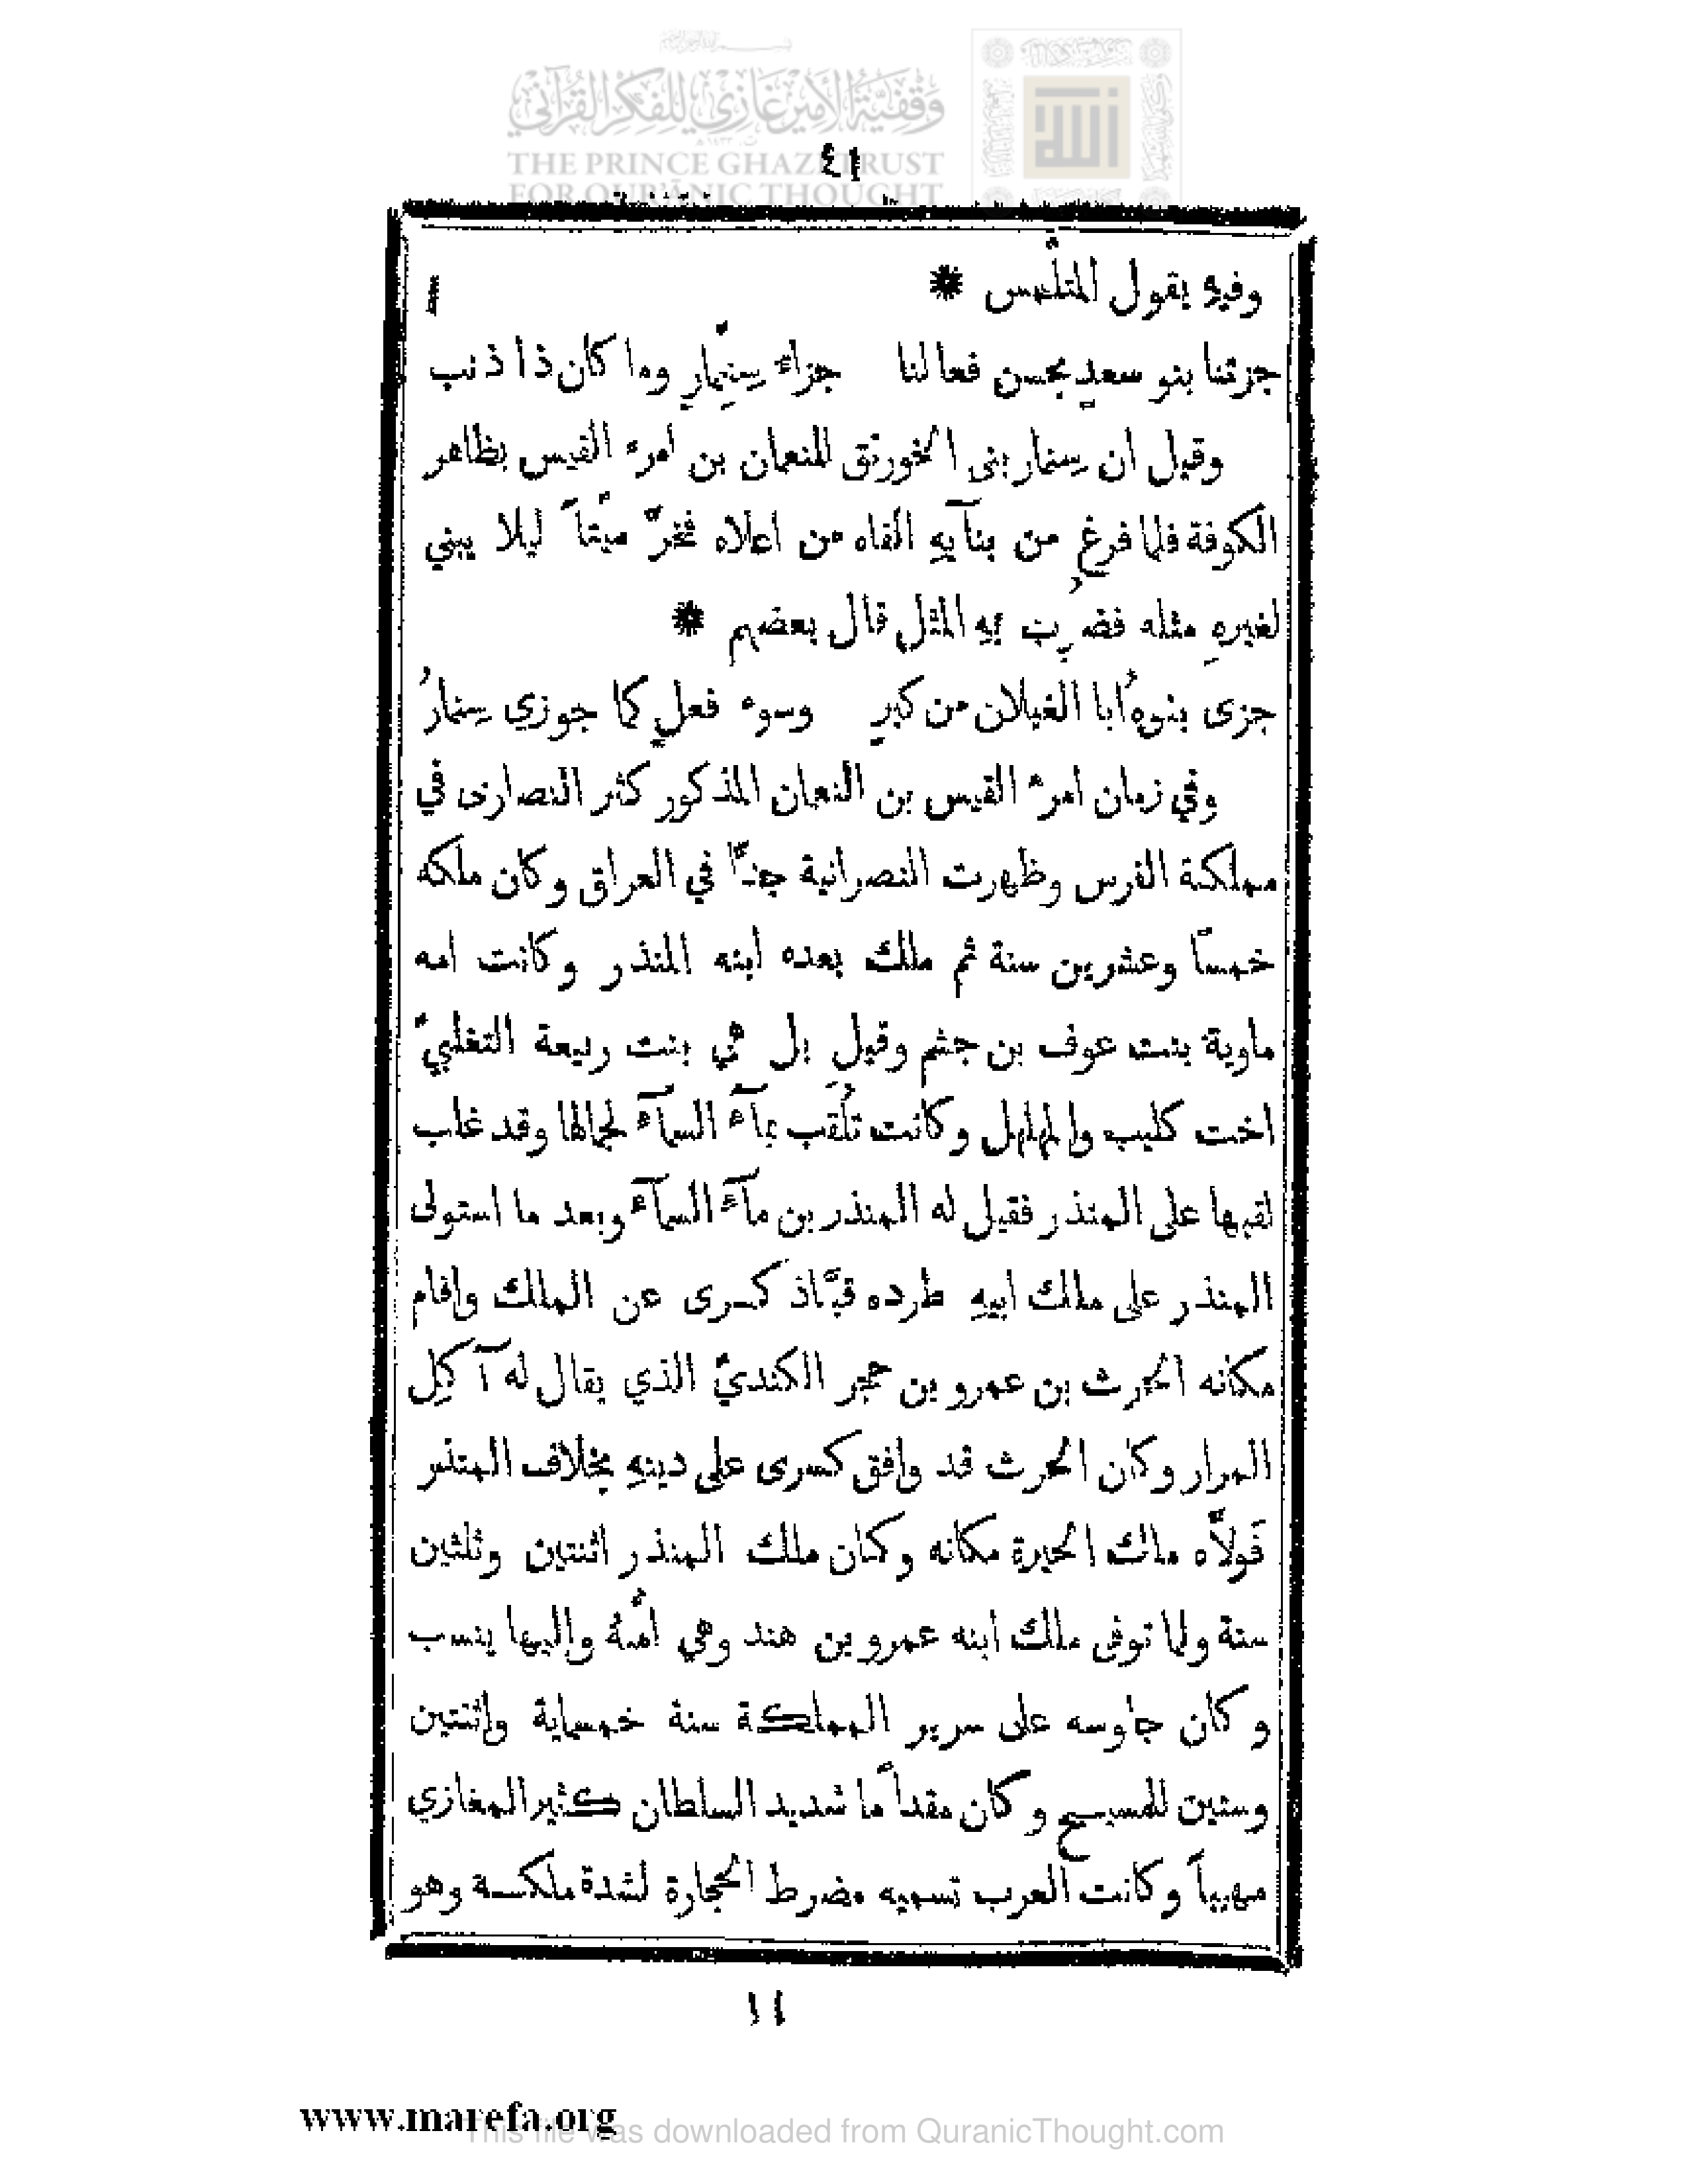 وقفية الأمير غازي للفكر القرآني
THE PRINCE GHAZI TRUST
FOR QUR'ĀNIC THOUGHT
٤١
وفيهِ يقول المتلّمس *
جزتنا بنو سعدٍ بحسن فعالنا جزاءَ سِنِمّارٍ وما كان ذا ذنب
وقيل ان سِنمار بنى الخورنق للنعمان بن امرء القيس بظاهر
الكوفة فلما فرغ من بنآيهِ القاه من اعلاه فخرَّ ميّتاً ليلا يبني
لغيرهِ مثله فضُرِب بهِ المثل قال بعضهم *
جزى بنوهُ ابا الغيلان من كبرٍ وسوء فعلٍ كما جوزي سِنمارُ
وفي زمان امرء القيس بن النعمان المذكور كثر النصارى في
مملكة الفرس وظهرت النصرانية جدًّا في العراق وكان ملكه
خمسًا وعشرين سنة ثم ملك بعده ابنه المنذر وكانت امه
ماوية بنت عوف بن جشم وقيل بل هي بنت ربيعة التغلبيّ
اخت كليب والمهلهل وكانت تُلَقب بمآء السمآء لجمالها وقد غلب
لقبها على المنذر فقيل له المنذر بن مآء السمآء وبعد ما استولى
المنذر على ملك ابيهِ طرده قبَّاذ كسرى عن الملك واقام
مكانه الحرث بن عمرو بن حجر الكنديّ الذي يقال له آكِل
المرار وكان الحرث قد وافق كسرى على دينهِ بخلاف المنذر
فَولاَّه ملك الحيرة مكانه وكان ملك المنذر اثنتين وثلثين
سنة ولما توفى ملك ابنه عمرو بن هند وهي اُمهُ واليها ينسب
وكان جلوسه على سرير المملكة سنة خمسماية واثنتين
وستين للمسيح وكان مقداًما شديد السلطان كثير المغازي
مهيباً وكانت العرب تسميه مضرط الحجارة لشدة ملكه وهو
١١
www.marefa.org
This file was downloaded from QuranicThought.com